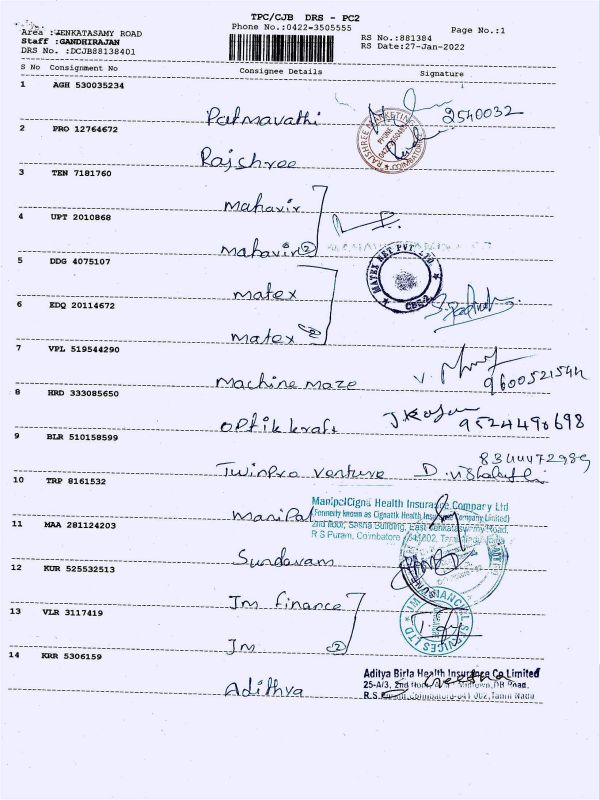 TPC/CJB DRS - PC2
Phone No.:0422-3505555
Page No.:1
Area :VENKATASAMY ROAD
Staff :GANDHIRAJAN
DRS No. :DCJB88138401
RS No.:881384
RS Date:27-Jan-2022
S No Consignment No Consignee Details Signature
1 AGH 530035234
Patmavathi 2540032
2 PRO 12764672
RAJSHREE MARKETING
COIMBATORE
Rajshree
3 TEN 7181760
Mahavir
4 UPT 2010868
Mahavir (2)
5 DDG 4075107
MATEX NET PVT LTD
CBE-2
Matex
6 EDQ 20114672
Matex (2)
7 VPL 519544290
Machine Maze
8 HRD 333085650
Optik kraft 9524490698
9 BLR 510158599
Twinpro venture
10 TRP 8161532
ManipalCigna Health Insurance Company Ltd
(Formerly known as Cignattk Health Insurance Company Limited)
2nd floor, Building, East Venkatasamy Road,
R S Puram, Coimbatore - 641002, Tamil Nadu
Manipal
11 MAA 281124203
Sundaram
12 KUR 525532513
Jm finance
13 VLR 3117419
JM FINANCIAL SERVICES LTD
Jm (2)
14 KRR 5306159
Adithya
Aditya Birla Health Insurance Co Limited
25-A/3, 2nd floor, DB Road,
R.S Puram, Coimbatore-641 002, Tamil Nadu